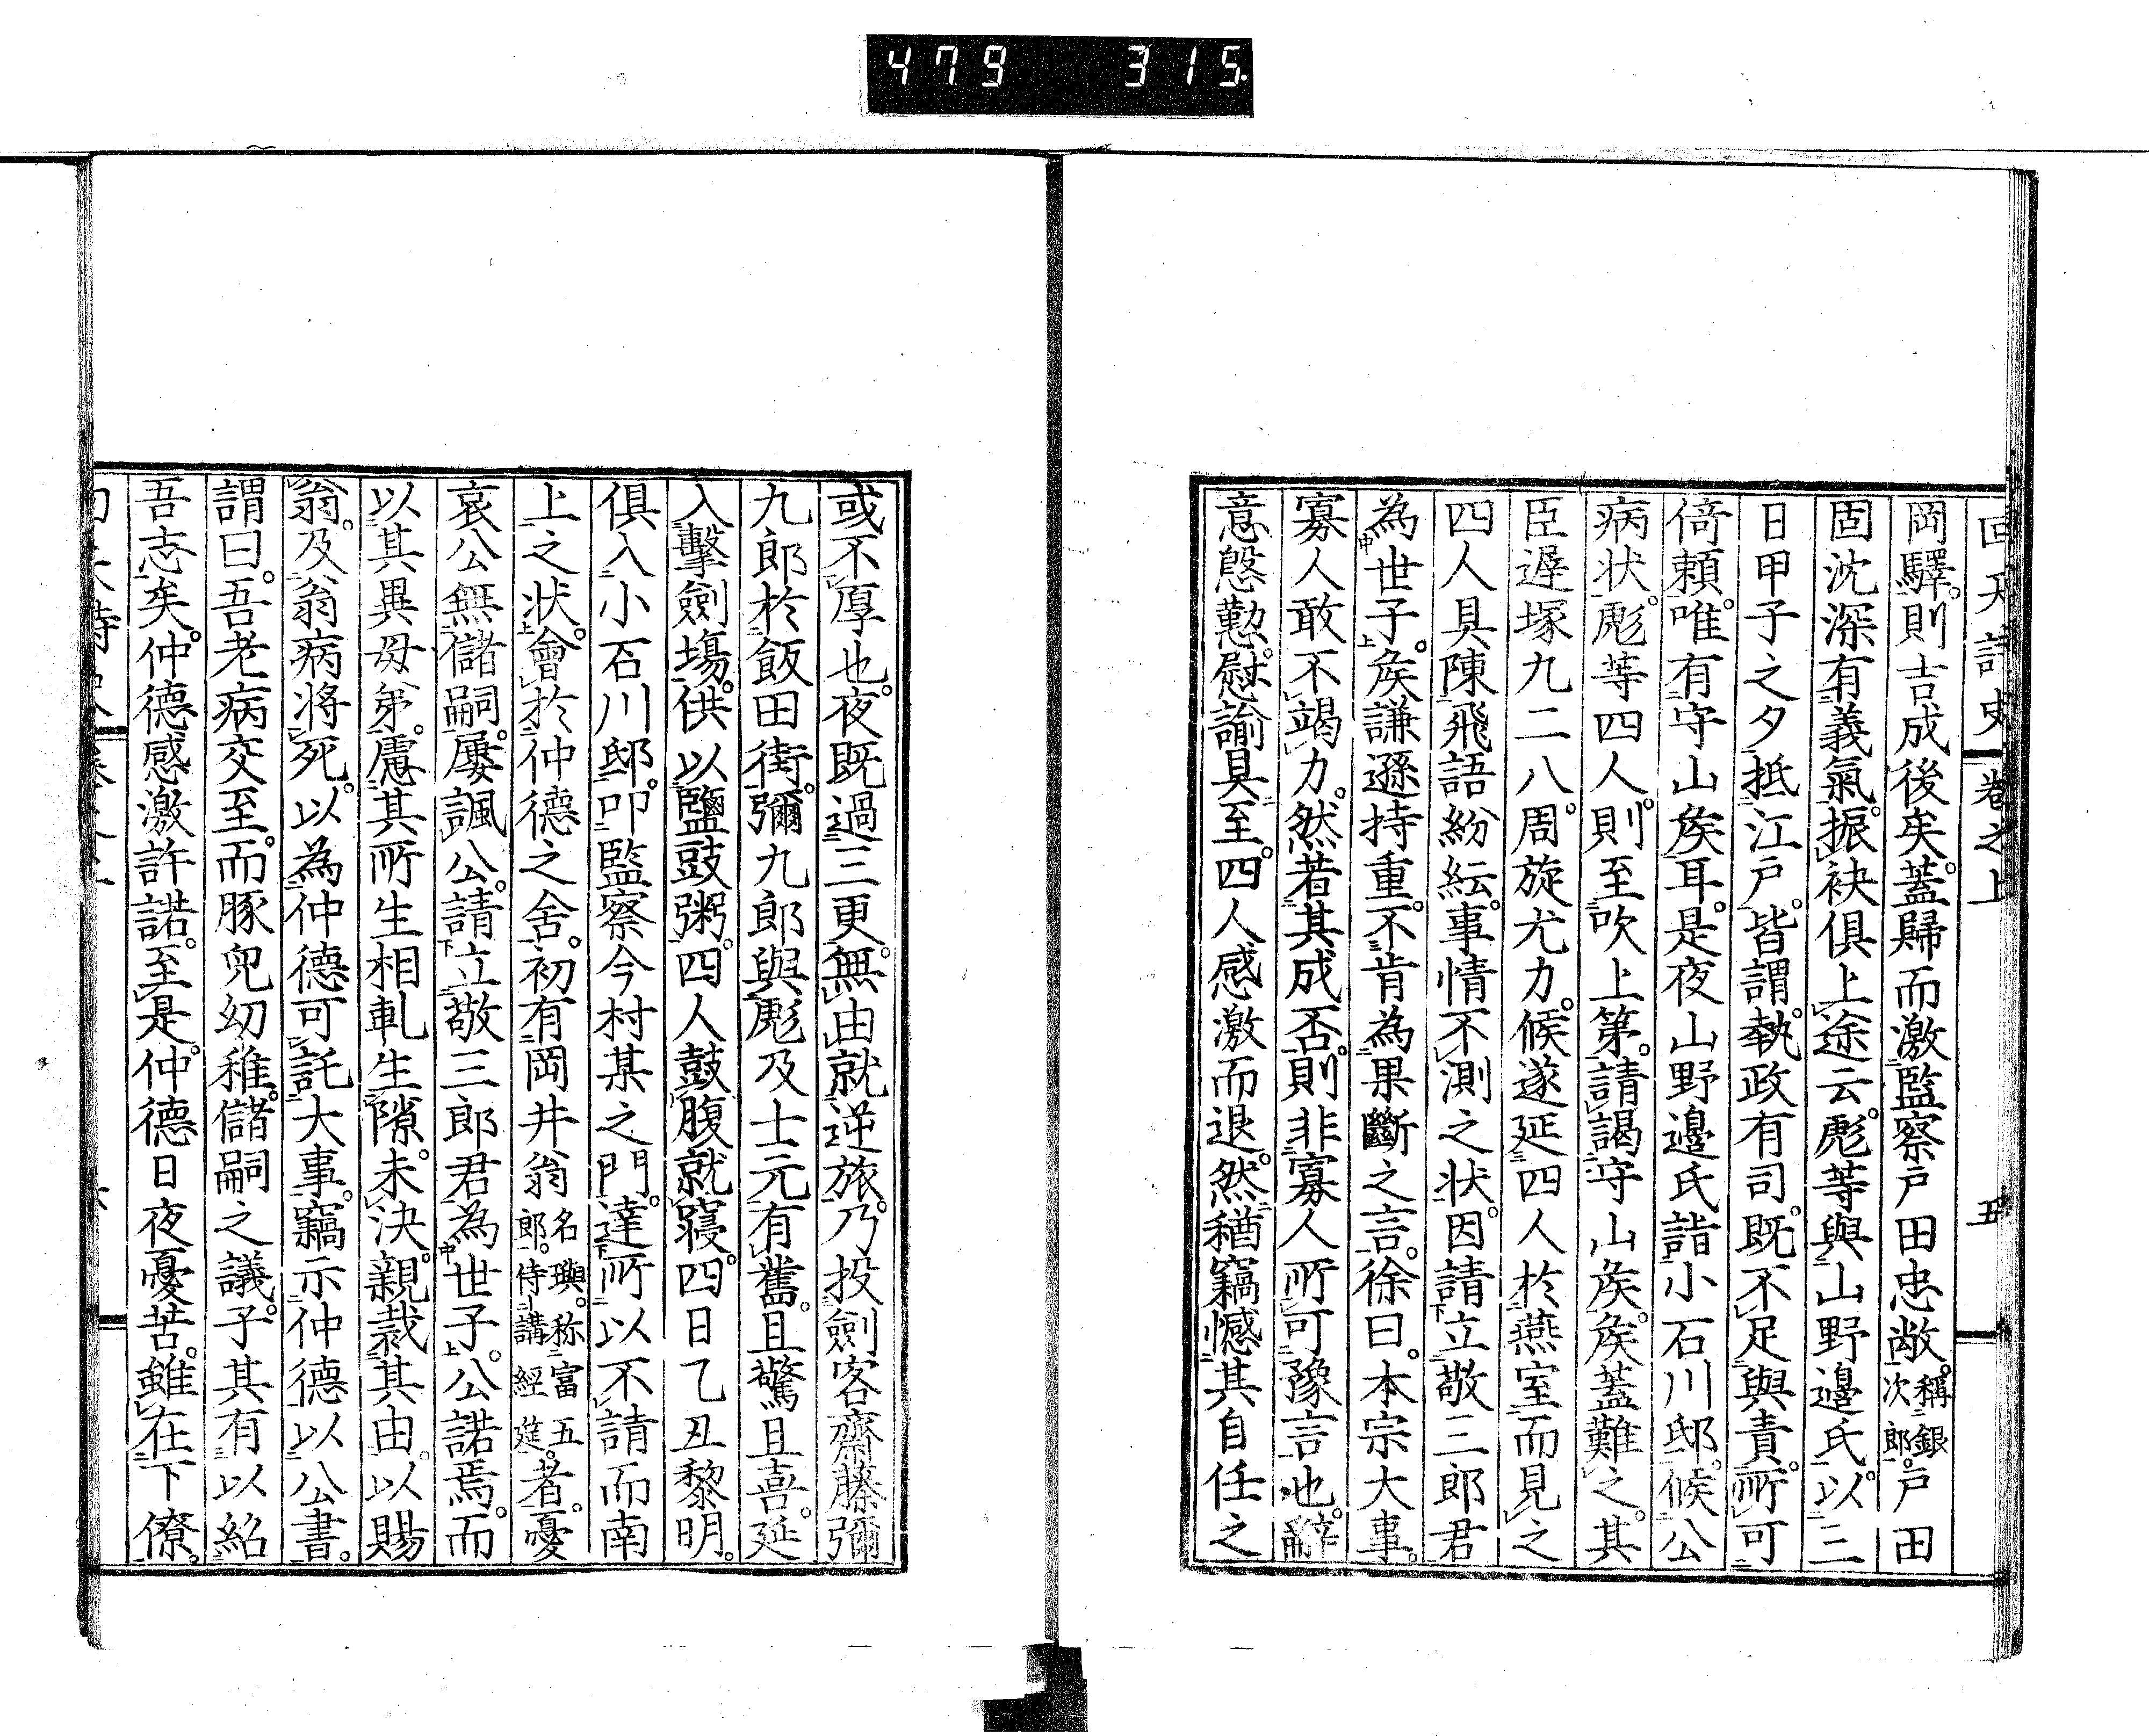 479 315
回天詩史 卷之上 五
岡驛。則吉成後矣。蓋歸而激監察戸田忠敞。稱銀次郎。戸田
固沈深有義氣。振袂俱上途云。彪等與山野邊氏。以三
日甲子之夕抵江戸。皆謂。執政有司。既不足與責。所可
倚賴。唯有守山矦耳。是夜山野邊氏詣小石川邸。候公
病状。彪等四人。則至吹上第。請謁守山矦。矦蓋難之。其
臣遅塚九二八。周旋尤力。候遂延四人於燕室而見之
四人具陳飛語紛紜。事情不測之状。因請立敬三郎君
為世子。矦謙遜持重。不肯為果斷之言。徐曰。本宗大事。
寡人敢不竭力。然若其成否。則非寡人所可豫言也。辭
意慇懃。慰諭具至。四人感激而退。然稍竊憾其自任之
或不厚也。夜既過三更。無由就逆旅。乃投劍客齋藤彌
九郎於飯田街。彌九郎與彪及士元有舊。且驚且喜。延
入擊劍場。供以鹽豉粥。四人鼓腹就寢。四日乙丑黎明。
俱入小石川邸。叩監察今村某之門。達所以不請而南
上之状。會於仲德之舍。初有岡井翁名璵。称富五郎。侍講經莚。者。憂
哀公無儲嗣。屢諷公。請立敬三郎君為世子。公諾焉。而
以其異母弟。慮其所生相軋生隙。未決。親裁其由。以賜
翁。及翁病將死。以為仲德可託大事。竊示仲德以公書。
謂曰。吾老病交至。而豚兒幼稚。儲嗣之議。子其有以紹
吾志矣。仲德感激許諾。至是。仲德日夜憂苦。雖在下僚。